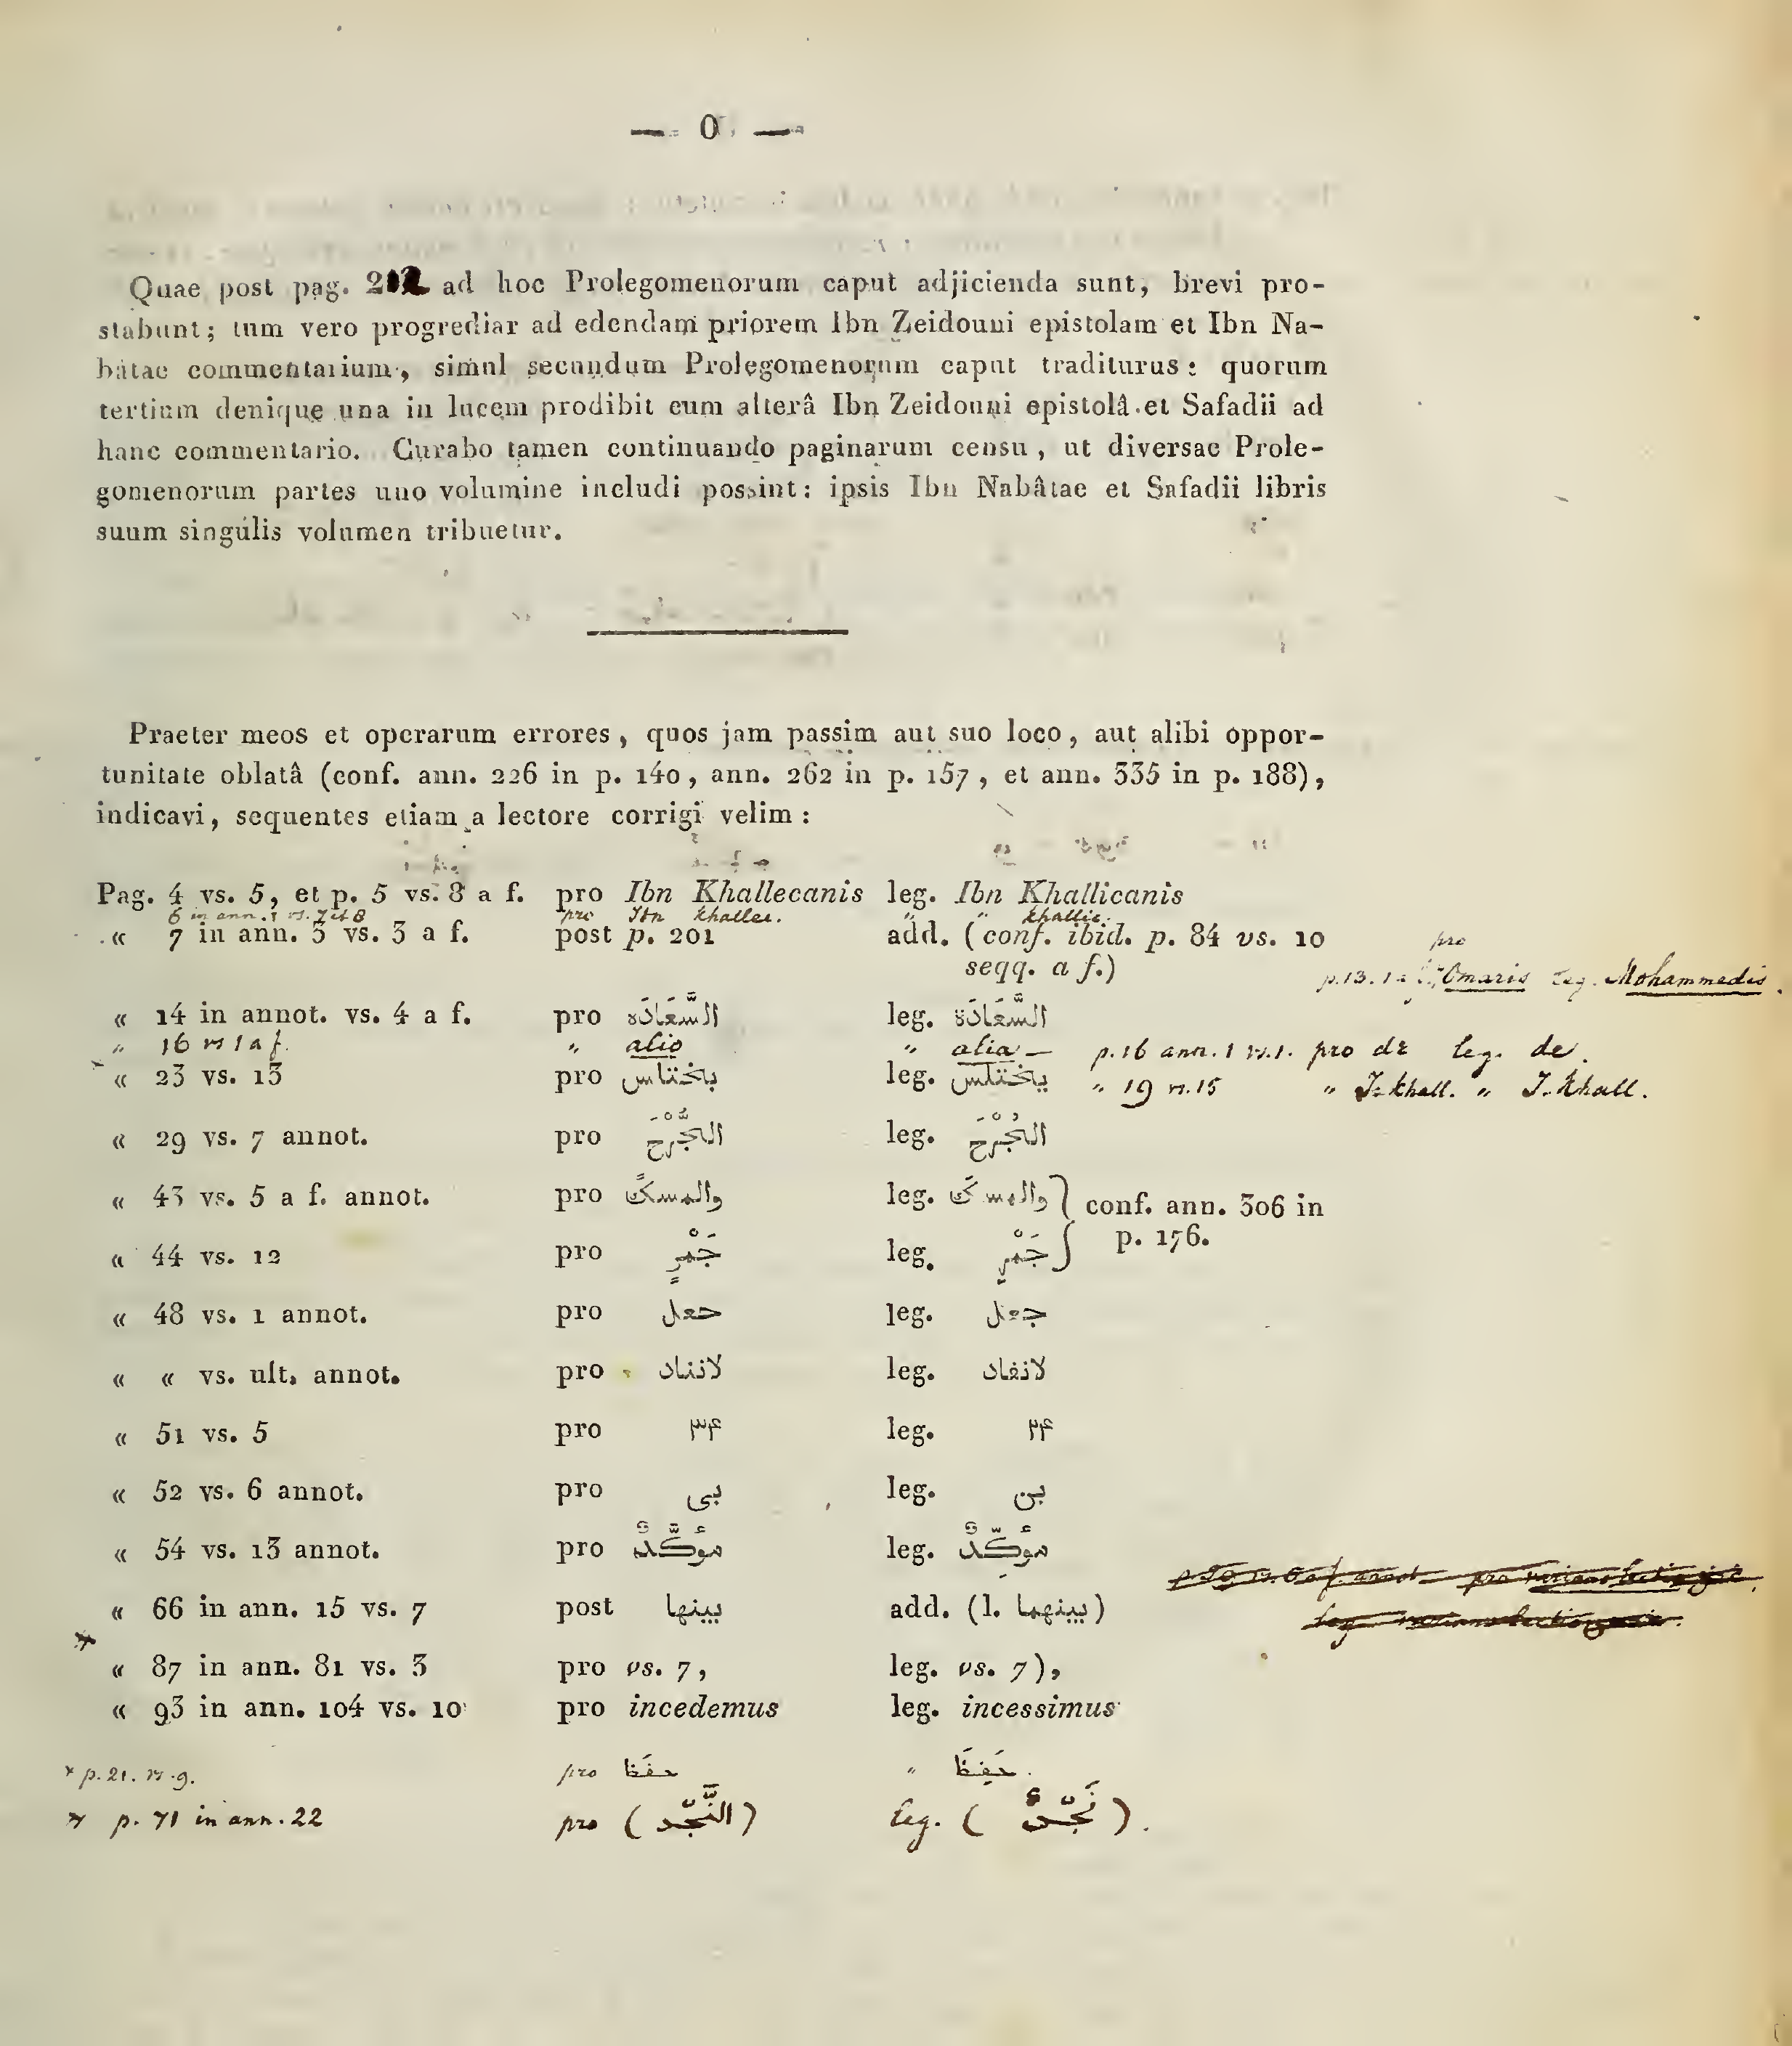 — 0 —
Quae post pag. 212 ad hoc Prolegomenorum caput adjicienda sunt, brevi pro-
stabunt; tum vero progrediar ad edendam priorem Ibn Zeidouni epistolam et Ibn Na-
bâtae commentarium, simul secundum Prolegomenorum caput traditurus: quorum
tertium denique una in lucem prodibit cum alterâ Ibn Zeidouni epistolâ et Safadii ad
hanc commentario. Curabo tamen continuando paginarum censu, ut diversae Prole-
gomenorum partes uno volumine includi possint: ipsis Ibn Nabâtae et Safadii libris
suum singulis volumen tribuetur.
Praeter meos et operarum errores, quos jam passim aut suo loco, aut alibi oppor-
tunitate oblatâ (conf. ann. 226 in p. 140, ann. 262 in p. 157, et ann. 335 in p. 188),
indicavi, sequentes etiam a lectore corrigi velim:
Pag. 4 vs. 5, et p. 5 vs. 8 a f. pro Ibn Khallecanis leg. Ibn Khallicanis
6 in ann. 1 vs. 7 et 8 pro Ibn Khallec. " " Khallic.
« 7 in ann. 3 vs. 3 a f. post p. 201 add. (conf. ibid. p. 84 vs. 10
seqq. a f.)
pro
p. 13. Omaris leg. Mohammedis.
« 14 in annot. vs. 4 a f. pro السَّعَادَه leg. السَّعَادَة
" 16 vs 1 a f. " alio " alia — p. 16 ann. 1 vs. 1. pro de leg. de.
« 23 vs. 13 pro بختاس leg. يختلس " 19 vs. 15 " I. khall. " I. Khall.
« 29 vs. 7 annot. pro الجُّرْحَ leg. الجُرْحَ
« 43 vs. 5 a f. annot. pro والمسكً leg. والمسكَ } conf. ann. 306 in
p. 176.
« 44 vs. 12 pro جَمْرٍ leg. جَمْرِ
« 48 vs. 1 annot. pro حعل leg. جعل
« « vs. ult. annot. pro لانناد leg. لانفاد
« 51 vs. 5 pro ۳۴ leg. ۲۴
« 52 vs. 6 annot. pro بى leg. بن
« 54 vs. 13 annot. pro موُكَّدٌ leg. موُكِّدٌ
« 66 in ann. 15 vs. 7 post بينها add. (l. بينهما)
« 87 in ann. 81 vs. 3 pro vs. 7, leg. vs. 7),
« 93 in ann. 104 vs. 10 pro incedemus leg. incessimus
* p. 21. vs. 9. pro حفَظ " حَفِظَ.
* p. 71 in ann. 22 pro (النَّجّد) leg. (نَجّدٌ).